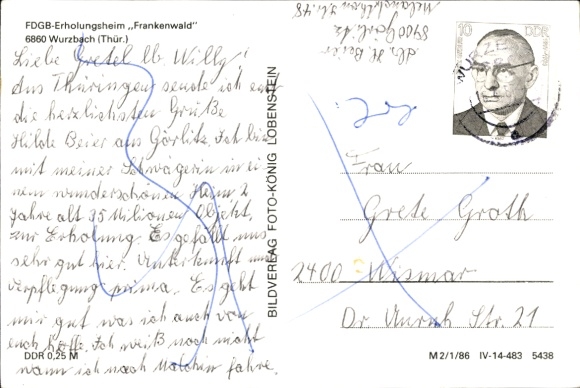 FDGB-Erholungsheim „Frankenwald"
6860 Wurzbach (Thür.)
Liebe Gretel lb. Willy!
Aus Thüringen sende ich euch
die herzlichsten Grüße
Hilde Beier aus Görlitz. Ich bin
mit meiner Schwägerin in ei
nem wunderschönen Heim 2
Jahre alt 35 Milionen Objekt,
zur Erholung. Es gefällt uns
sehr gut hier. Unterkunft und
Verpflegung prima. Es geht
mir gut was ich auch von
euch hoffe. Ich weiß noch nicht
wann ich nach Malchin fahre.
DDR 0,25 M
BILDVERLAG FOTO-KÖNIG LOBENSTEIN
Abs. H. Beier
8900 Görlitz
Str. 48
10 DDR
WURZB
Frau
Grete Groth
2400 Wismar
Dr. Unruh Str. 21
M 2/1/86 IV-14-483 5438